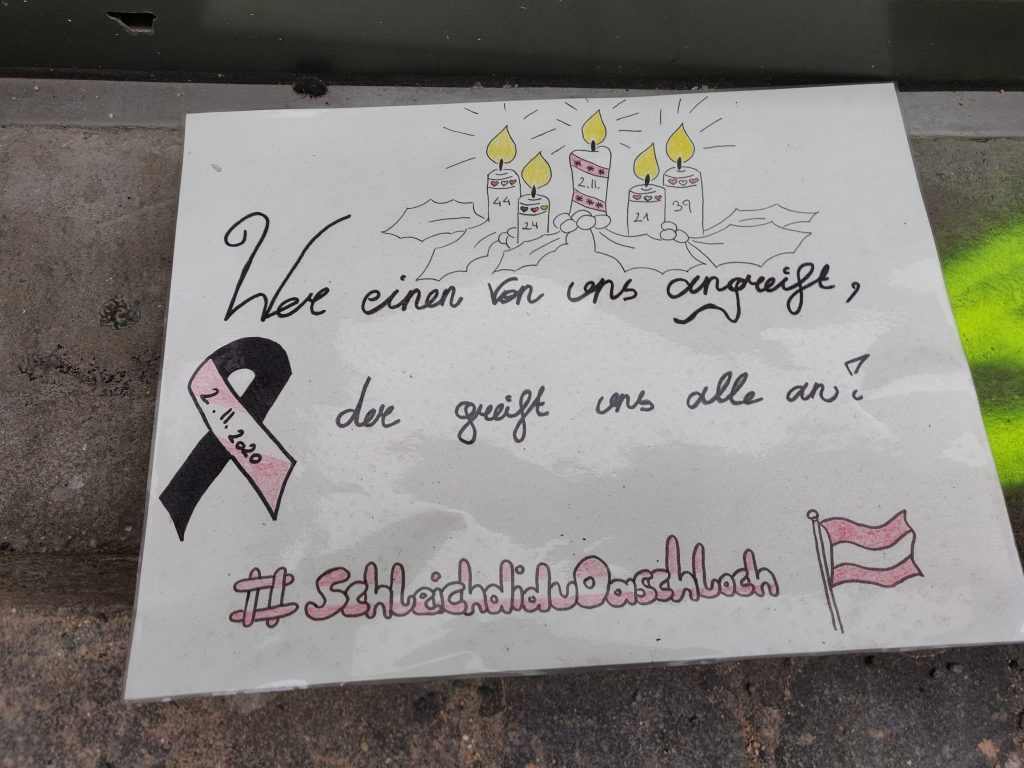 2.11.
44
24
21
39
Wer einen von uns angreift,
der greift uns alle an!
2.11.2020
#SchleichdiduOaschloch